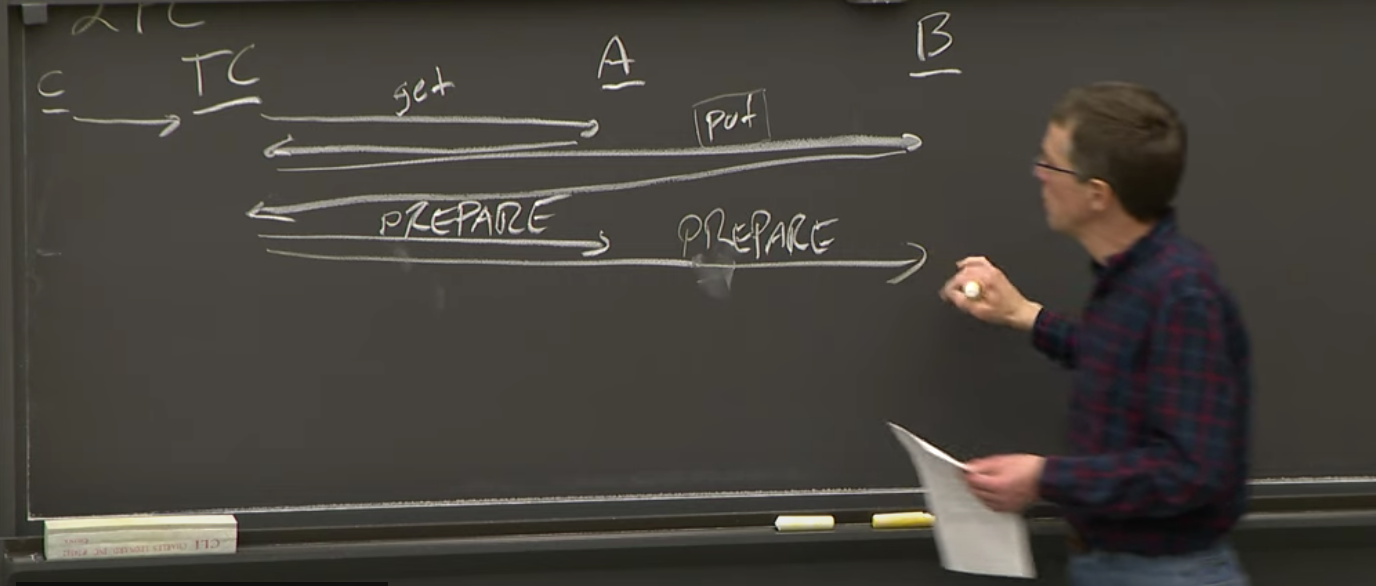 2PC
C TC A B
get
put
PREPARE PREPARE